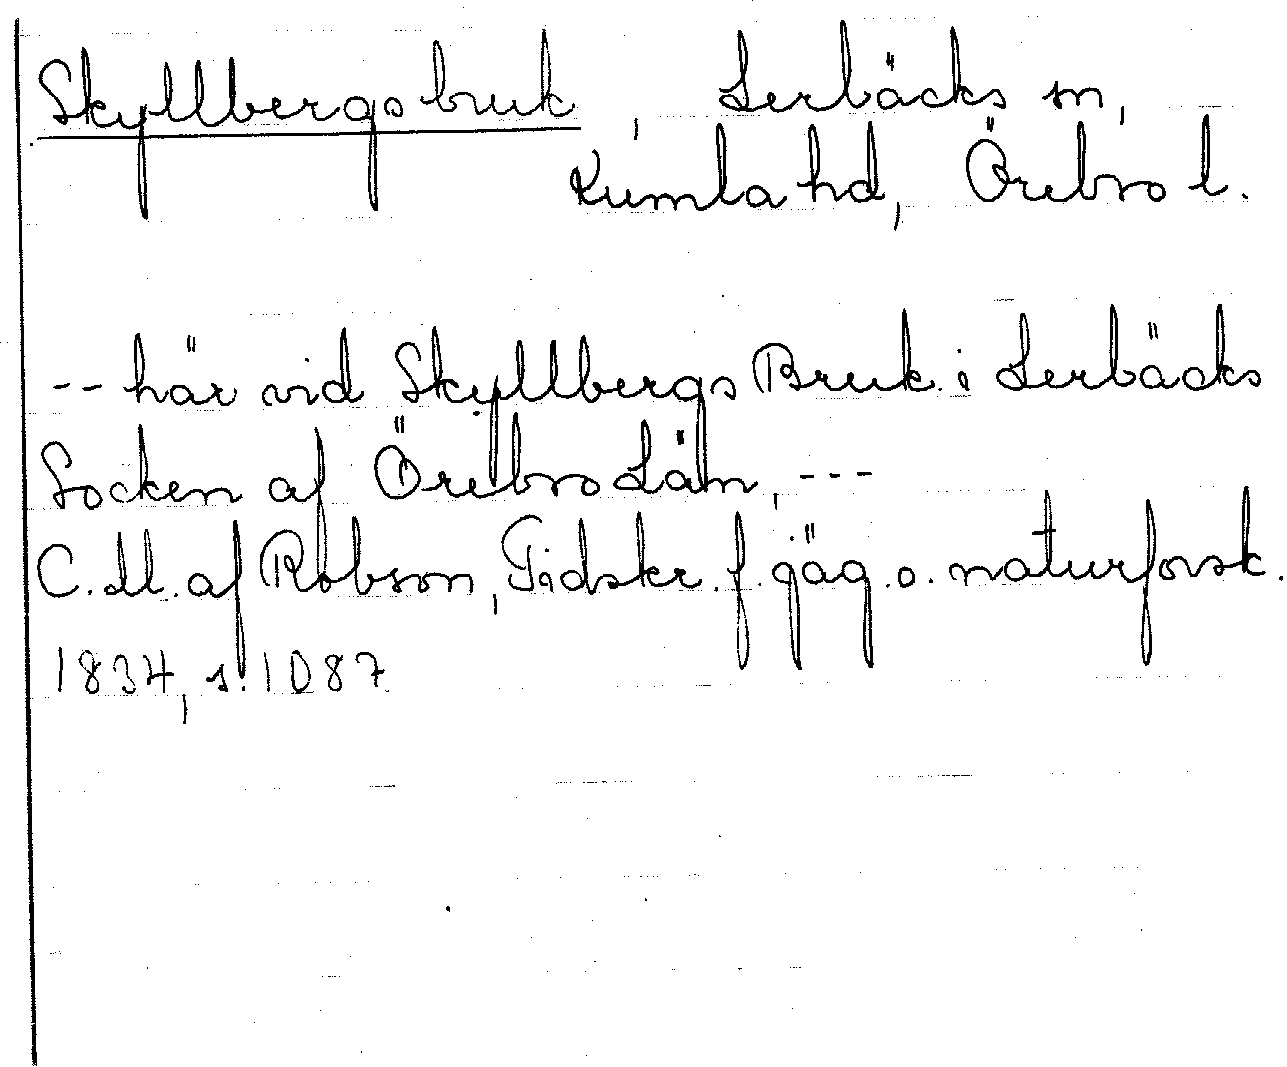 Skyllbergs bruk, Lerbäcks sn,
Kumla hd, Örebro l.
-- här vid Skyllbergs Bruk i Lerbäcks
Socken af Örebro Län, ---
C.M. af Robson, Tidskr. f. jäg. o. naturforsk.
1834, s. 1087